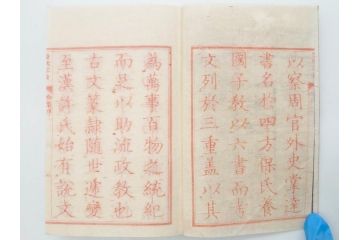 以察周官外史掌達
書名於四方保氏養
國子教以六書而考
文列於三重蓋以其
爲萬事百物之統紀
而足以助流政教也
古文篆隸隨世遞變
至漢許氏始有說文